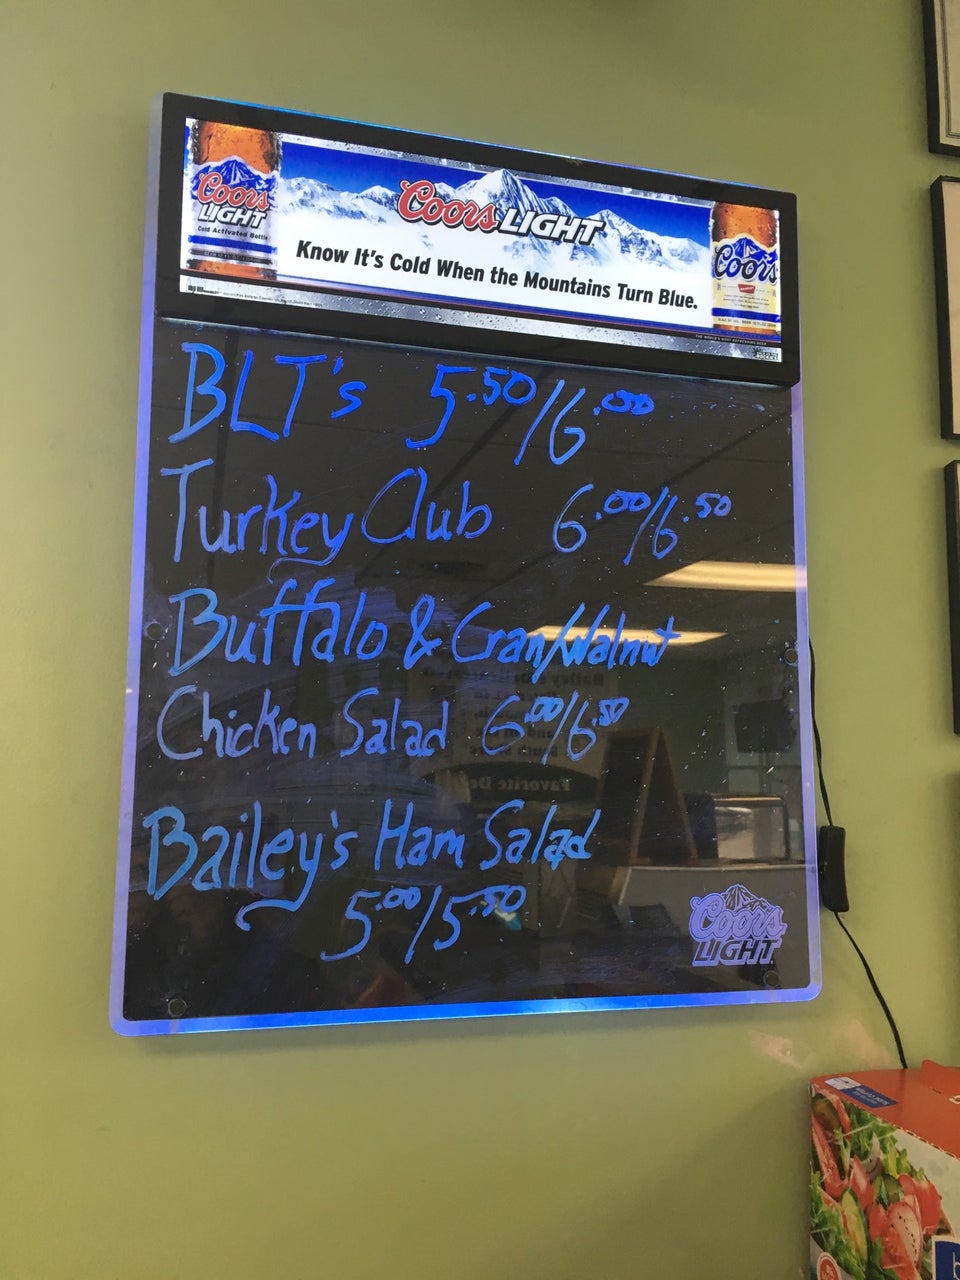 Coors LIGHT
Know It's Cold When the Mountains Turn Blue.
Coors
LIGHT
Cold Activated Bottle
Coors
BLT's 5.50/6.00
Turkey Club 6.00/6.50
Buffalo & Cran/Walnut
Chicken Salad 6.00/6.50
Bailey's Ham Salad
5.00/5.50
Coors
LIGHT